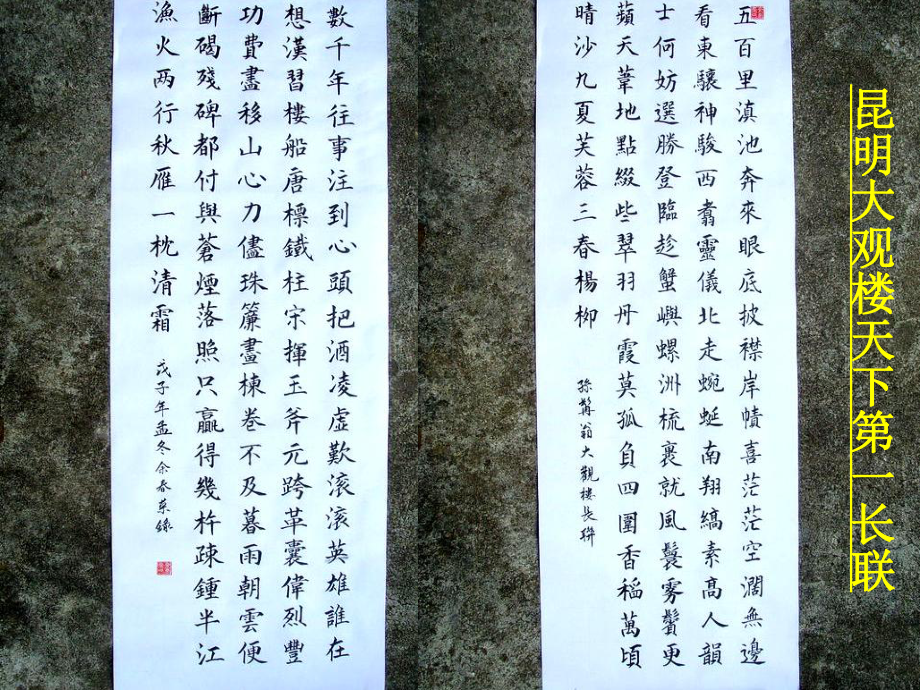 昆明大观楼天下第一长联
五百里滇池奔來眼底披襟岸幘喜茫茫空濶無邊
看東驤神駿西翥靈儀北走蜿蜒南翔縞素高人韻
士何妨選勝登臨趁蟹嶼螺洲梳裹就風鬟雾鬢更
蘋天葦地點綴些翠羽丹霞莫孤負四圍香稻萬頃
晴沙九夏芙蓉三春楊柳
孫髯翁大觀樓長聯
數千年往事注到心頭把酒凌虛歎滾滾英雄誰在
想漢習樓船唐標鐵柱宋揮玉斧元跨革囊偉烈豐
功費盡移山心力儘珠簾畫棟卷不及暮雨朝雲便
斷碣殘碑都付與蒼煙落照只贏得幾杵疎鍾半江
漁火两行秋雁一枕清霜
戊子年孟冬余春英錄